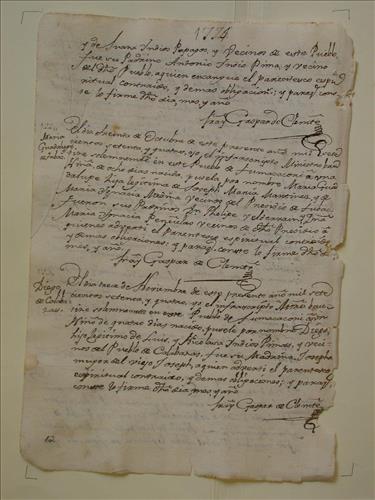 1774
y de Juana Indios Papagos, y Vecinos de este Pueblo,
fue su Padrino Antonio Indio Pima, y vecino
del dho Pueblo, a quien encargue el parentesco espi-
ritual contraido, y demas obligacion; y para q conste
lo firme dho dia, mes y año
Fray Gaspar de Clemte
Maria
Guadalupe
El dia treinta de Octubre de este presente año mil sete
cientos setenta y quatro, yo el infrascripto Ministro bau
tize solemnemente en este Pueblo de Tumacacori a una
Niña de ocho dias nacida, pusela por nombre Maria Gua
dalupe hija legitima de Joseph Maria Martinez, y de
Maria Ignacia vecinos del Presidio de
fueron sus Padrinos Phelipe y
Maria Ignacia vecinos de dho Presidio à
quienes adverti el parentesco espiritual contraido
y demas obligaciones; y para q conste lo firme dho dia
mes, y año
Fray Gaspar de Clemte
Diego
de Calaba
zas
El dia trece de Noviembre de este presente año mil sete
cientos setenta y quatro, yo el infrascripto Mtro bau
tize solemnemente en este Pueblo de Tumacacori a un
Niño de quatro dias nacido, pusele por nombre Diego,
hijo legitimo de Luis, y Indios Pimas, y veci
nos del Pueblo de Calabazas, fue su Madrina Josepha
muger del viejo Joseph, a quien adverti el parentesco
espiritual contraido, y demas obligaciones; y para q
conste lo firme dho dia mes y año
Fray Gaspar de Clemte